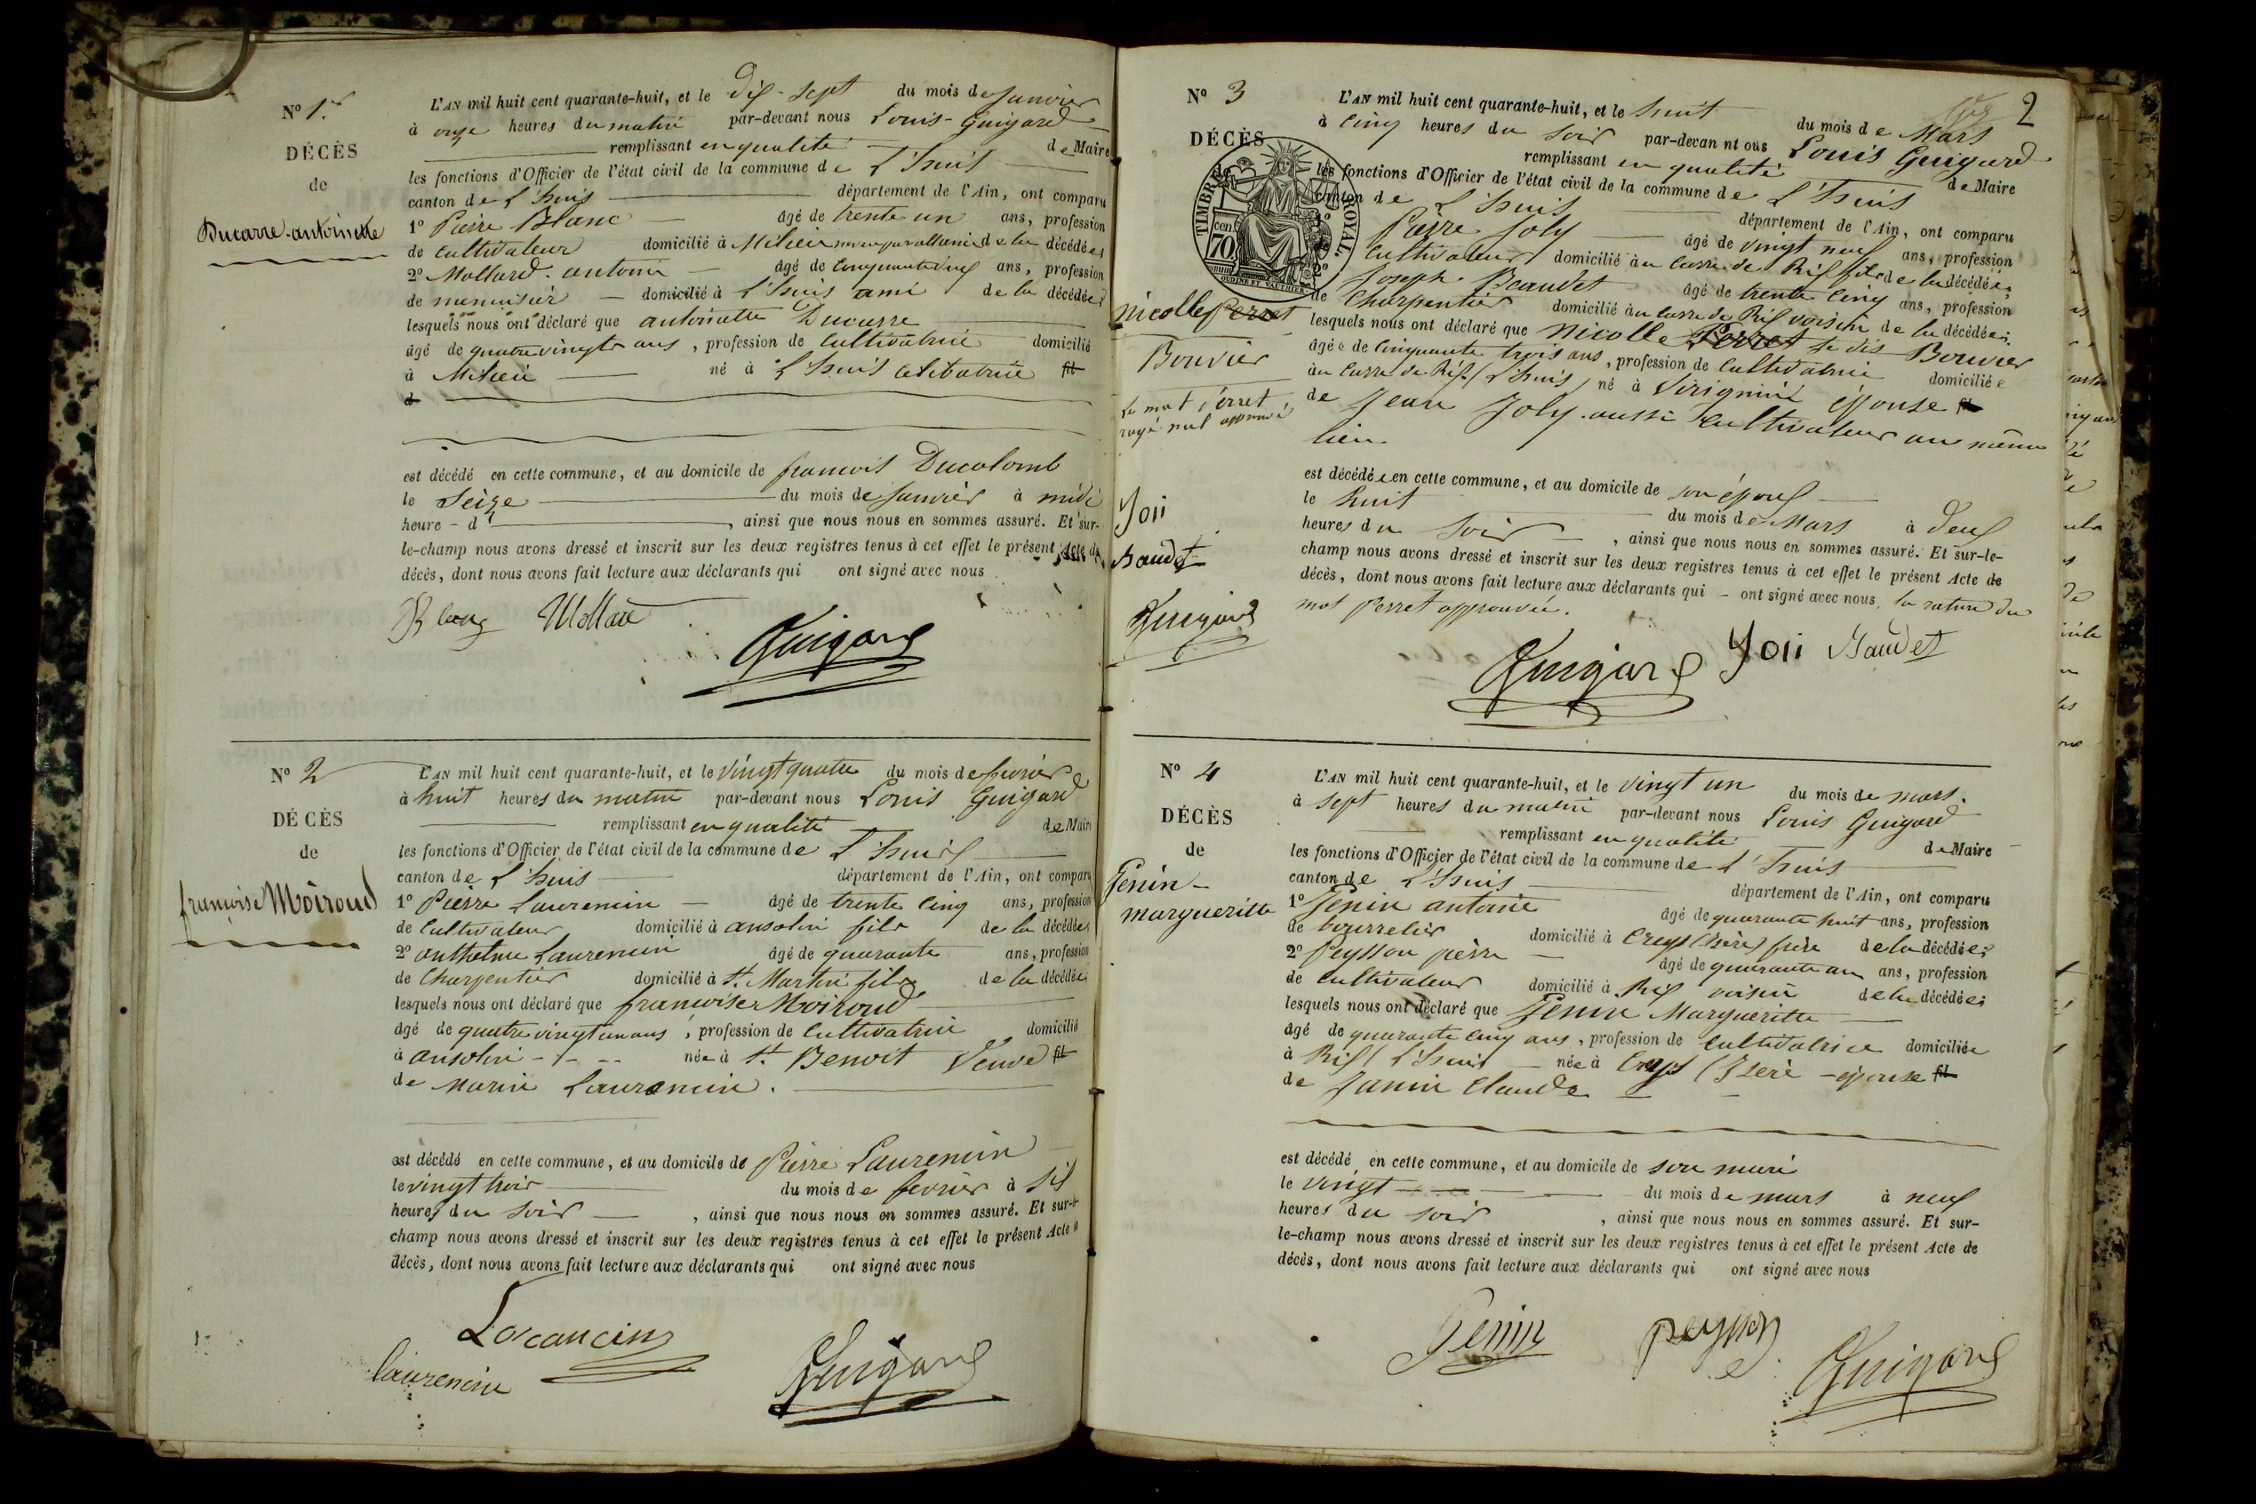 N° 1.er
DÉCÈS
de
Ducarre antoinette
L'AN mil huit cent quarante-huit, et le dix-sept du mois de Janvier
à onze heures du matin par-devant nous Louis Guigard
remplissant en qualité de Maire
les fonctions d'Officier de l'état civil de la commune de L'huis
canton de L'huis département de l'Ain, ont comparu
1° Pierre Blanc âgé de trente un ans, profession
de Cultivateur domicilié à Milieu de la décédée;
2° Mollard antoine âgé de cinquante deux ans, profession
de menuisier domicilié à L'huis ami de la décédée;
lesquels nous ont déclaré que antoinette Ducarre
âgé de quatre vingts ans, profession de Cultivatrice domicilié
à Milieu né à L'huis célibataire fil
d
est décédé en cette commune, et au domicile de francois Ducolomb
le Seize du mois de Janvier à midi
heure d' , ainsi que nous nous en sommes assuré. Et sur-
le-champ nous avons dressé et inscrit sur les deux registres tenus à cet effet le présent Acte de
décès, dont nous avons fait lecture aux déclarants qui ont signé avec nous
Blanc Mollard
Guigard
N° 2
DÉCÈS
de
francoise Moiroud
L'AN mil huit cent quarante-huit, et le vingt quatre du mois de fevrier
à huit heures du matin par-devant nous Louis Guigard
remplissant en qualité de Maire
les fonctions d'Officier de l'état civil de la commune de L'huis
canton de L'huis département de l'Ain, ont comparu
1° Pierre Laurencin âgé de trente cinq ans, profession
de Cultivateur domicilié à ansolin fils de la décédée;
2° anthelme Laurencin âgé de quarante ans, profession
de Charpentier domicilié à St. Martin fils de la décédée;
lesquels nous ont déclaré que francoise Moiroud
âgé de quatre vingt un ans, profession de Cultivatrice domicilié
à ansolin née à St. Benoit Veuve fil
de Marin Laurencin.
est décédé en cette commune, et au domicile de Pierre Laurencin
le vingt trois du mois de fevrier à six
heures du soir , ainsi que nous nous en sommes assuré. Et sur-le-
champ nous avons dressé et inscrit sur les deux registres tenus à cet effet le présent Acte
décès, dont nous avons fait lecture aux déclarants qui ont signé avec nous
Lorancin
laurencin Guigard
2
N° 3
DÉCÈS
TIMBRE ROYAL
70 cen
nicolle Perret
Bouvier
Le mot Perret
rayé nul approuvé
Joli
Baudet
Guigard
L'AN mil huit cent quarante-huit, et le huit du mois de Mars
à Cinq heures du soir par-devant nous Louis Guigard
remplissant en qualité de Maire
les fonctions d'Officier de l'état civil de la commune de L'huis
canton de L'huis département de l'Ain, ont comparu
1° Pierre Joly âgé de vingt neuf ans, profession
Cultivateur domicilié au Carre de Rix fils de la décédée;
2° Joseph Beaudet âgé de trente Cinq ans, profession
de Charpentier domicilié au Carre de Rix voisin de la décédée;
lesquels nous ont déclaré que nicolle Perret te dis Bouvier
âgée de Cinquante trois ans, profession de Cultivatrice domiciliée
au Carre de Rix (L'huis) né à Virignin épouse fil
de Jean Joly aussi Cultivateur au même
lieu
est décédée en cette commune, et au domicile de son époux
le huit du mois de Mars à deux
heures du soir , ainsi que nous nous en sommes assuré. Et sur-le-
champ nous avons dressé et inscrit sur les deux registres tenus à cet effet le présent Acte de
décès, dont nous avons fait lecture aux déclarants qui ont signé avec nous, la rature du
mot Perret approuvée.
Guigard Joli Baudet
N° 4
DÉCÈS
de
Genin
margueritte
L'AN mil huit cent quarante-huit, et le vingt un du mois de mars.
à sept heures du matin par-devant nous Louis Guigard
remplissant en qualité de Maire
les fonctions d'Officier de l'état civil de la commune de L'huis
canton de L'huis département de l'Ain, ont comparu
1° Genin antoine âgé de quarante huit ans, profession
de bourrelier domicilié à Creys (Isère) frère de la décédée;
2° Peysson pierre âgé de quarante un ans, profession
de Cultivateur domicilié à Rix voisin de la décédée;
lesquels nous ont déclaré que Genin Margueritte
âgé de quarante cinq ans, profession de Cultivatrice domiciliée
à Rix (L'huis née à Creys (Isère épouse fil
de Janin Claude
est décédé en cette commune, et au domicile de son mari
le vingt du mois de mars à neuf
heures du soir , ainsi que nous nous en sommes assuré. Et sur-
le-champ nous avons dressé et inscrit sur les deux registres tenus à cet effet le présent Acte de
décès, dont nous avons fait lecture aux déclarants qui ont signé avec nous
Genin peysson
Guigard